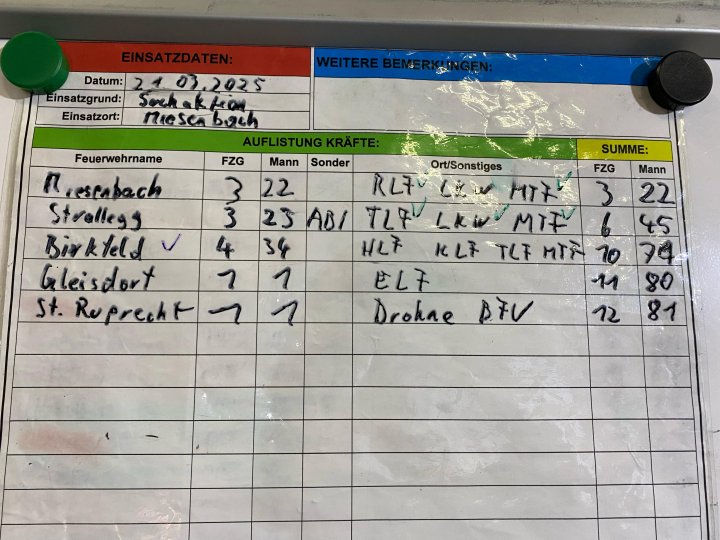 EINSATZDATEN:
WEITERE BEMERKUNGEN:
Datum: 21 03.2025
Einsatzgrund: Suchaktion
Einsatzort: Miesenbach
AUFLISTUNG KRÄFTE: SUMME:
Feuerwehrname FZG Mann Sonder Ort/Sonstiges FZG Mann
Miesenbach 3 22 RLF ✓ LKW MTF ✓ 3 22
Strallegg 3 23 ABI TLF ✓ LKW ✓ MTF ✓ 6 45
Birkfeld ✓ 4 34 HLF KLF TLF MTF 10 79
Gleisdorf 1 1 ELF 11 80
St. Ruprecht 1 1 Drohne BFV 12 81